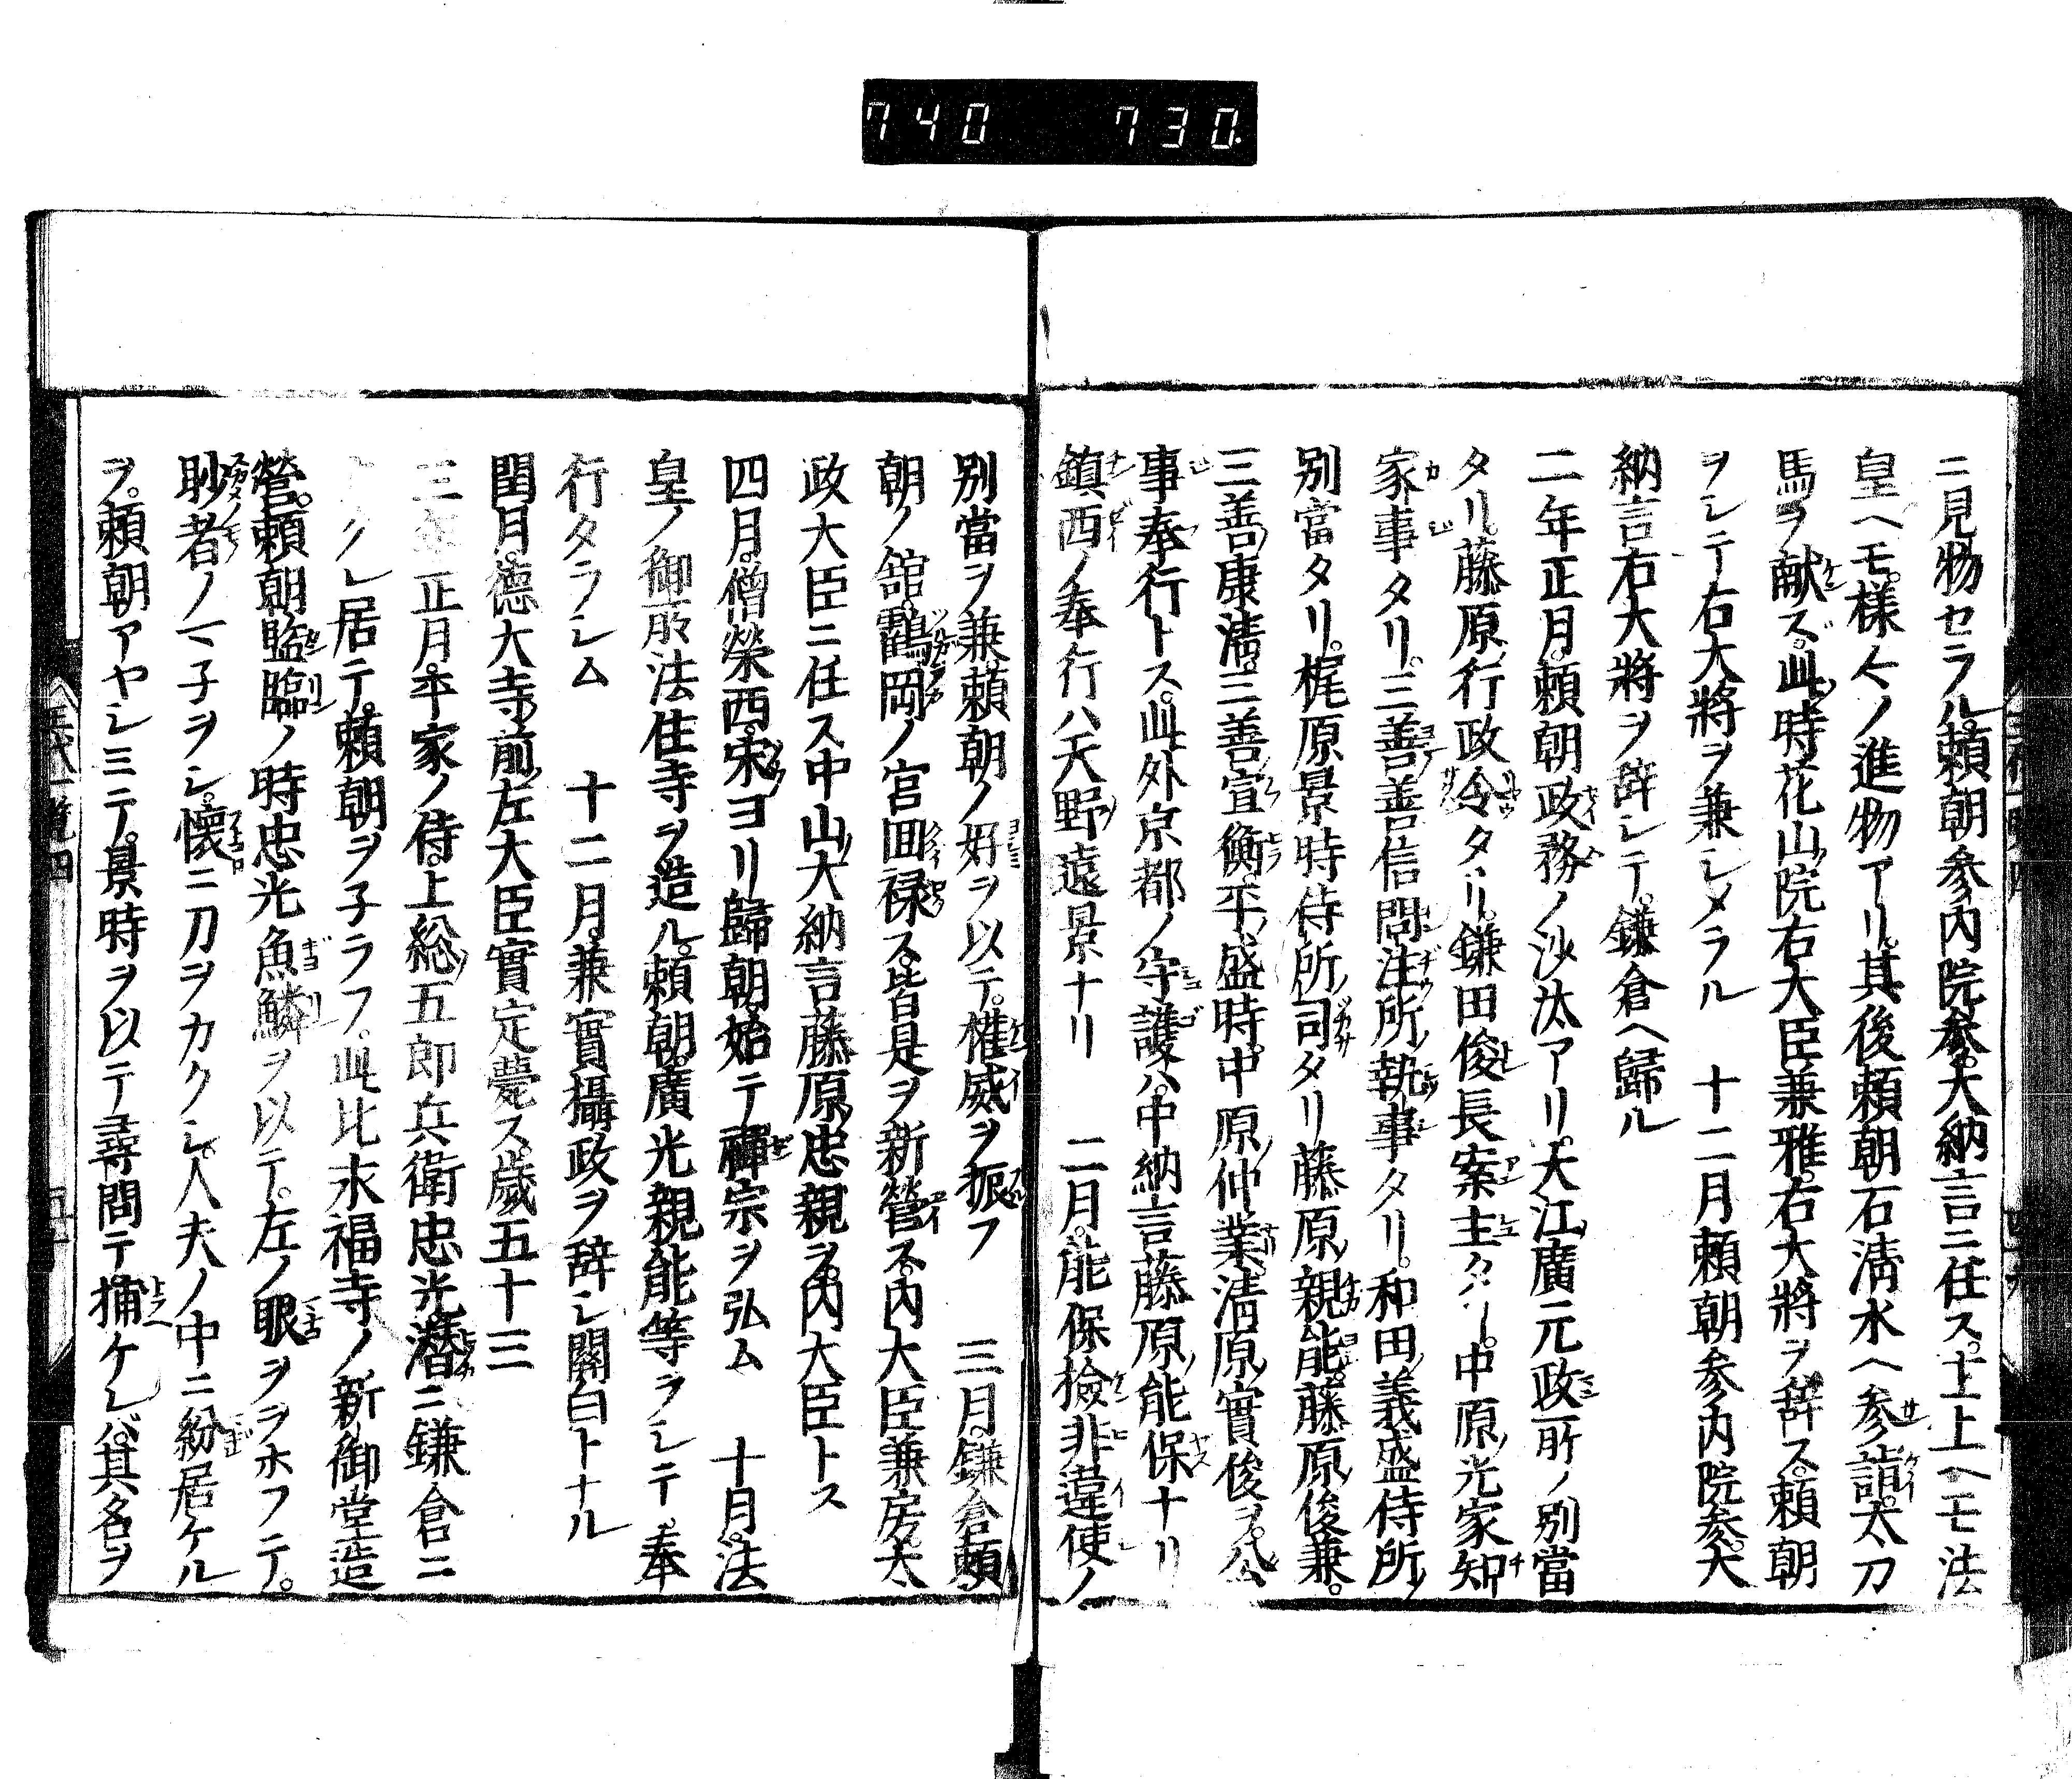 740 730
ニ見物セラル。頼朝参内院参。大納言ニ任ス。主上ヘモ法
皇ヘモ。様々ノ進物アリ。其後頼朝石清水ヘ参詣。太刀
馬ヲ献ズ。此時花山院右大臣兼雅。右大將ヲ辞ス。頼朝
ヲシテ右大將ヲ兼シメラル 十二月頼朝参内院参。大
納言右大將ヲ辞シテ。鎌倉ヘ歸ル
二年正月。頼朝政務ノ沙汰アリ。大江廣元政所ノ別當
タリ。藤原行政令タリ。鎌田俊長案主タリ。中原光家知
家事タリ。三善善信問注所執事タリ。和田義盛侍所ノ
別當タリ。梶原景時侍所司タリ藤原親能。藤原俊兼。
三善康清。三善宣衡。平盛時。中原仲業。清原實俊ヲ。公
事奉行トス。此外京都ノ守護ハ。中納言藤原能保ナリ
鎮西ノ奉行ハ天野遠景ナリ 二月。能保檢非違使ノ
別當ヲ兼頼朝ノ好ヲ以テ。權威ヲ振フ 三月。鎌倉頼
朝ノ舘。鶴岡ノ宮回禄ス。皆是ヲ新營ス。内大臣兼房。太
政大臣ニ任ス中山大納言藤原忠親ヲ。内大臣トス
四月。僧榮西。宋ヨリ歸朝。始テ禪宗ヲ弘ム 十月。法
皇ノ御所法住寺ヲ造ル。頼朝。廣光親能等ヲシテ。奉
行タラシム 十二月。兼實攝政ヲ辞シ關白トナル
閏月。徳大寺前左大臣實定薨ス。歳五十三
三年正月。平家ノ侍。上総五郎兵衛忠光。潜ニ鎌倉ニ
カクレ居テ。頼朝ヲ子ラフ。此比永福寺ノ新御堂造
營。頼朝監臨ノ時忠光魚鱗ヲ以テ。左ノ眼ヲヲホフテ。
眇者ノマ子ヲシ。懐ニ刀ヲカクシ。人夫ノ中ニ紛居ケル
ヲ。頼朝アヤシミテ。景時ヲ以テ尋問テ。捕ケレバ。其名ヲ